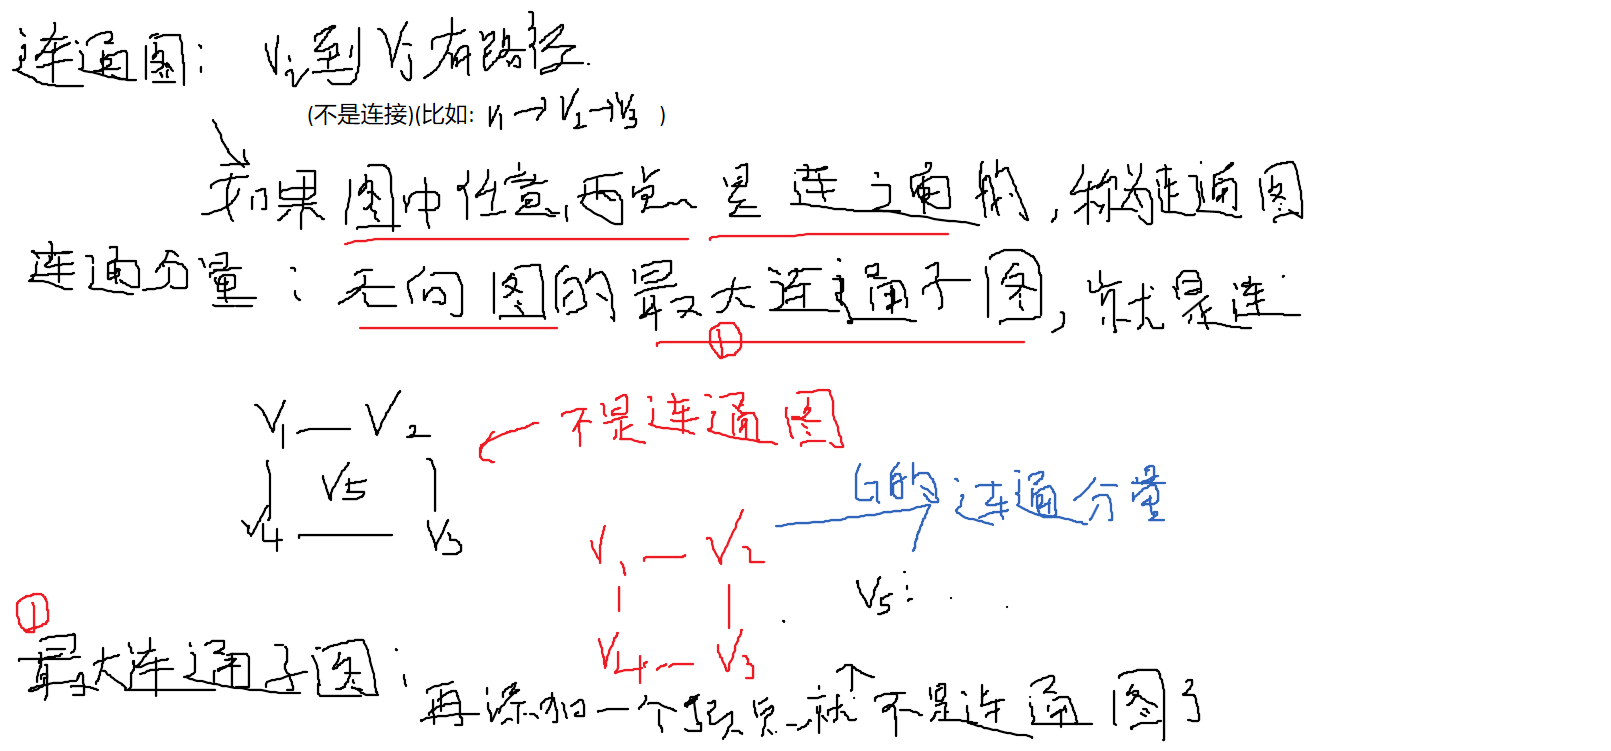 连通图: Vi到Vj有路径.
(不是连接)(比如: V1→V2→V3 )
如果图中任意两点是连通的,称为连通图
连通分量: 无向图的最大连通子图,就是连
①
V1 — V2
不是连通图
V5
V4 — V3
G的连通分量
V1 — V2
V5:
V4 — V3
①
最大连通子图:
再添加一个顶点就不是连通图了